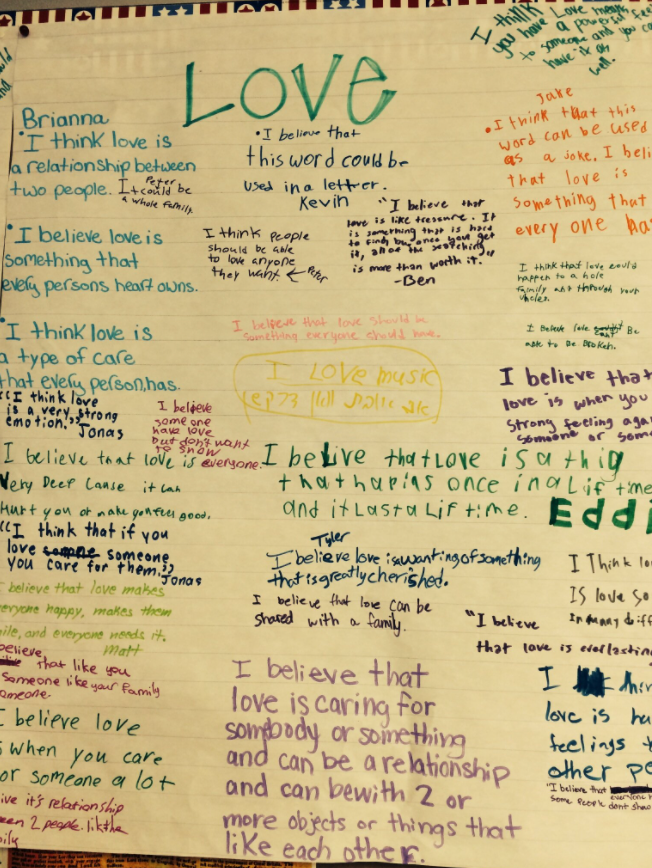 Love
I think
you have Love means
a powerful feel
to someone and you ca
have it as
well.
Brianna
•I think love is
a relationship between
two people.
Peter
It could be
a whole family.
•I believe that
this word could be
used in a letter.
Kevin
Jake
•I think that this
word can be used
as a joke. I beli
that love is
something that
every one has
•I believe love is
something that
every persons heart owns.
I think people
should be able
to love anyone
they want. ← Peter
"I believe that
love is like tressure. It
is something that is hard
to find but once you get
it, all of the searching
is more than worth it."
-Ben
I think that love could
happen to a hole
family ant through your
uncles.
I believe that love should be
something everyone should have.
I Believe love Be
able to be Broken.
•I think love is
a type of care
that every person, has.
I Love music
I believe that
love is when you
strong feeling aga
someone or some
"I think love
is a very strong
emotion."
Jonas
I believe
some one
have love
but don't want
to show
I believe that love is everyone.
Very Deep Cause it can
Hurt you or make you feel good.
I belive that Love is a thig
that hapins once in a Lif time
and it Last a Lif time.
Eddi
"I think that if you
love someone
you care for them."
Jonas
Tyler
I believe love is a wanting of something
that is greatly cherished.
I Think lo
Is love so
In many diff
I believe that love makes
everyone happy, makes them
mile, and everyone needs it.
Matt
I believe that love can be
shared with a family.
"I believe
that love is everlasting
believe
that like you
someone like your family
someone.
I believe that
love is caring for
somebody or something
and can be a relationship
and can be with 2 or
more objects or things that
like each other.
I thin
love is ha
feelings t
other pe
I believe love
s when you care
or someone a lot
"I believe that everyone h
some people dont show
ive it's relationship
een 2 people. lik the
mily